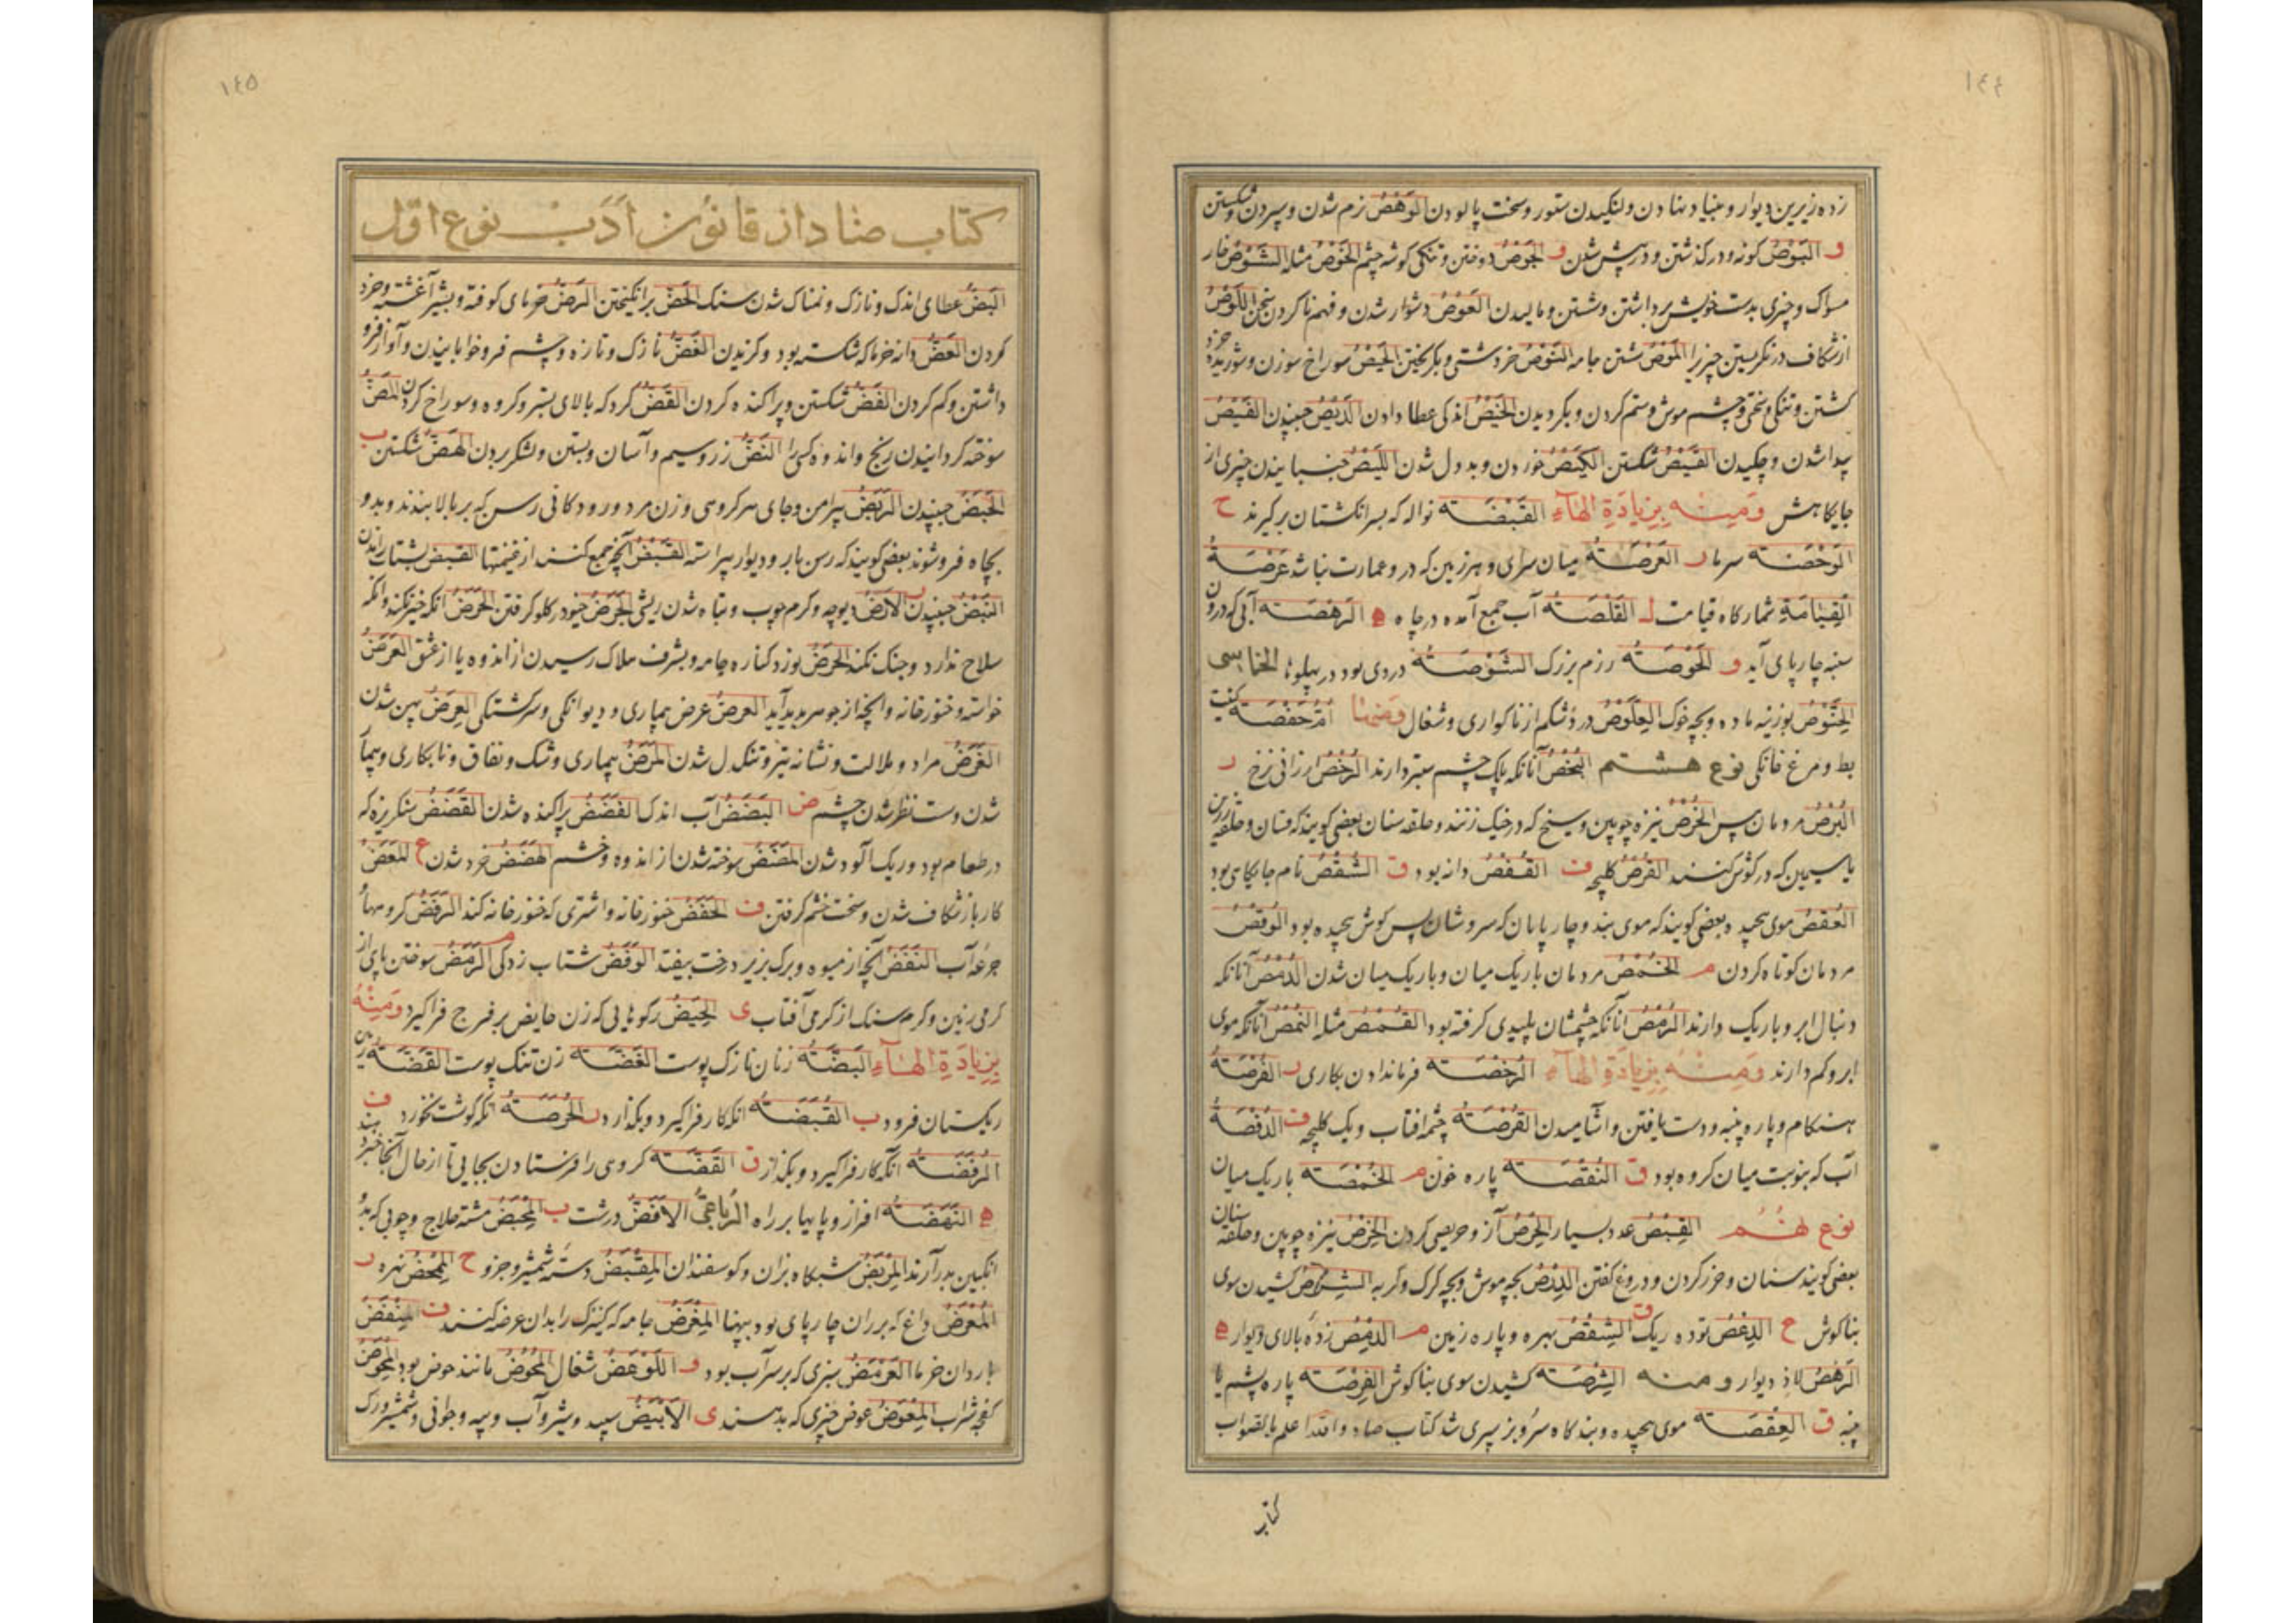 ١٤٤
زده زیرین دیوار و بنیاد نهادن و لنگیدن ستور و سخت پالودن الوَهْصُ نرم شدن و سپردن و شکستن
و البَوْصُ کونه و درگذشتن و در پیش شدن و الحَوْصُ دوختن و تنگی گوشه چشم الخَوْصُ مثله الشَّوْصُ خار
مسواک و چیزی بدست خویش برداشتن و شستن و مالیدن العَوْصُ دشوار شدن و فهم ناکردن سخن اللَّوْصُ
از شکاف در نگریستن چیزیرا المَوْصُ شستن جامه النَّوْصُ خر دشتی و بگریختن الحَیْصُ سوراخ سوزن و شوریده
گشتن و تنگی و سختی و چشم موش و ستم کردن و بگردیدن الخَیْصُ اندکی عطا دادن الدَّیْصُ جنبیدن الفَیْصُ
پیدا شدن و چکیدن القَیْصُ شکستن الکَیْصُ خوردن و بددل شدن اللَّیْصُ جنبانیدن چیزی از
جایگاهش وَمِنْهُ بِزِیَادَةِ الهَاءِ القَبْصَة نواله که بسر انگشتان برگیرند ح
الوَحْصَة سرما ر العَرْصَةُ میان سرای و هر زمین که درو عمارت نباشد عَرْصَةُ
القِیَامَةِ شمارگاه قیامت ل القَلْصَةُ آب جمع آمده در چاه ه الرَّهْصَة آبی که درون
سنبه چارپای آید و الحَوْصَةُ رزم بزرک الشَّوْصَةُ دردی بود در پهلوها الخماسی
الخِنَّوْصُ بوزنه ماده و بچه خوک العِلَّوْصُ درد شکم از ناگواری و شغال وَمِنْهَا اُمُّ حَفْصَة کنیت
بط و مرغ خانگی نوع هشتم البُخْصُ آنانکه پلک چشم ستبر دارند الرُّخْصُ ارزانی نرخ ر
البُرْصُ مردمان پیس الخُرْصُ نیزه چوبین و سیخ که در خیک زنند و حلقه سنان بعضی گویند که فسان و حلقه زرین
یا سیمین که در گوش کنند القُرْصُ کلیچه ف القُفْصُ دانه بود ق الشُّقْصُ نام جایگاهی بود
العُقْصُ موی پیچیده بعضی گویند که موی بند و چارپایان که سروشان پس گوش پیچیده بود الوُقْصُ
مردمان کوتاه گردن م الخُمْصُ مردمان باریک میان و باریک میان شدن الدُّمْصُ آنانکه
دنبال ابرو باریک دارند الرُّمْصُ آنانکه چشمشان پلیدی گرفته بود الغُمْصُ مثله النُّمْصُ آنانکه موی
ابرو کم دارند وَمِنْهُ بِزِیَادَةِ الهَاءِ الرُّخْصَة فرمان دادن بکاری ر الفُرْصَةُ
هنگام و پاره پنبه و دست یافتن و آشامیدن القُرْصَةُ چشمه آفتاب و یک کلیچه ف الدُّفْصَةُ
آب که بنوبت میان گروه بود ق النُّقْصَة پاره خون م الخُمْصَة باریک میان
نوع نهم القِبْصُ عدد بسیار الحِرْصُ آز و حریصی کردن الخِرْصُ نیزه چوبین و حلقه سنان
بعضی گویند سنان و حزر کردن و دروغ گفتن الدِّرْصُ بچه موش و بچه گرگ و گربه الشِّرْصُ کشیدن سوی
بناگوش ع الدِّعْصُ توده ریک ق الشِّقْصُ بهره و پاره زمین م الدِّمْصُ زده بالای دیوار ه
الرِّهْصُ لاذ دیوار ومنه الشِّرْصَة کشیدن سوی بناگوش الفِرْصَة پاره پشم یا
پنبه ق العِقْصَة موی پیچیده و بندگاه سرو بز سپری شد کتاب صاد والله اعلم بالصواب
کتاب
١٤٥
کتاب ضاد از قانون اَدَبْ نوع اوّل
البَضُّ عطای اندک و نازک و نمناک شدن سنک الحَضُّ برانگیختن الرَّضُّ خرمای کوفته و بشیر آغشته و خرد
کردن العَضُّ دانه خرما که شکسته بود و گزیدن الغَضُّ نازک و تازه و چشم فرو خوابانیدن و آواز فرو
داشتن و کم کردن الفَضُّ شکستن و پراکنده کردن القَضُّ گرد که بالای بستر و گروه و سوراخ کردن المَضُّ
سوخته گردانیدن رنج و اندوه کسی را النَّضُّ زر و سیم و آسان و بستن و لشکر بردن الهَضُّ شکستن ب
الحَبَضُ جنبیدن الرَّبَضُ پیرامن و جای هر گروهی و زن مرد و رودگانی رسن که بر بالا بندند و بدو
بچاه فروشوند بعضی گویند که رسن بار و دیوار پیراسته القَبَضُ آنچه جمع کنند از غنیمتها القبض بشتاب راندن
النَّبَضُ جنبیدن ر الأَرَضُ دیوچه و کرم چوب و تباه شدن ریش الجَرَضُ خیو در گلو گرفتن الحَرَضُ آنکه خیر نکند و آنکه
سلاح ندارد و جنک نکند الحَرَضُ نورد کناره جامه و بشرف هلاک رسیدن از اندوه یا از عشق العَرَضُ
خواسته و خنور خانه و آنچه از جوهر پدید آید العرض عرض بیماری و دیوانگی و سرگشتگی العرض پهن شدن
الغَرَضُ مراد و ملالت و نشانه تیر و تنکدل شدن المَرَضُ بیماری و شک و نفاق و نابکاری و بیمار
شدن و سست نظر شدن چشم ض البَضَضُ آب اندک الفَضَضُ پراکنده شدن القَضَضُ سنگریزه که
در طعام بود و ریک آلود شدن المَضَضُ سوخته شدن از اندوه و خشم الهَضَضُ خرد شدن ع المَعَضُ
کار باز شکاف شدن و سخت خشم گرفتن ف الحَفَضُ خنور خانه و اشتری که خنور خانه کند الرَّفَضُ گروهها
جرعه آب النَّفَضُ آنچه از میوه و برک بزیر درخت بیفتد الوَفَضُ شتاب زدگی م الرَّمَضُ سوختن پای از
گرمی زمین و گرم سنک از گرمی آفتاب ی الحَیَضُ رگوهایی که زن حایض بر فرج فراگیرد وَمِنْهُ
بِزِیَادَةِ الهَاءِ البَضَّةُ زنان نازک پوست الغَضَّة زن تنک پوست القَضَّة
ریگستان فرود ب القُبَضَةُ آنکه کار فراگیرد و بگذارد ر الحُرَضَةُ آنکه گوشت نخورد ف
الرُّفَضَةُ آنکه کار فراگیرد و بگذارد ق القَضَّة گروهی را فرستادن بجایی تا از حال آنجا خبر دهند
ه النَّهْضَةُ افراز و پایها بر راه الرُّباعیُّ الأَقَضُّ درشت ب المِحْبَضُ مشته حلاج و چوبی که بدو
انگبین بدر آرند المَرْبَضُ شبگاه بزان و گوسفندان المِقْبَضُ دسته شمشیر و جزو ح المِمْحَضُ نهره ر
المُعْرَضُ داغ که بر ران چارپای بود بپهنا المِعْرَضُ جامه که کنیزک را بدان عرضه کنند ف المِنْفَضُ
باردان خرما العَرْمَضُ سبزی که بر سر آب بود و اللَّوْهَضُ شغال المُحَوَّضُ مانند حوض بود المِخْوَضُ
کفچه شراب المِعْوَضُ عوض چیزی که بدهند ی الأَبْیَضُ سپید و شیر و آب و پیه و جوانی و شمشیر و رک